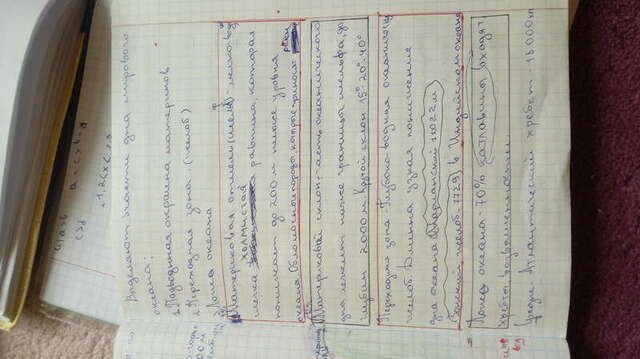 a = c > b = d
Выделяют 3 части дна мирового
океана:
1. Подводная окраина материков
2. Переходная зона (желоб)
3. Ложа океана
Материковая отмель (шельф) - мелко вод
холмистая
равнина, которая
понижает до 200 м ниже уровня
океана. Обломочные породы, которые приносят реки
Материковой склон - часть океанического
дна лежит ниже границы шельфа, до
глубин 2000 м Крутой склон 15°-20°-40°
Переходная зона - Глубоко-водная океаническ
желоб. Длинна узкая понижение
дна океана (Марианский 11022 м
Зонский желоб - 7729) в Индийском океане
Ложа океана - 70% катлавины входят
хребты, возвышенности
Атлантический хребет - 18000 км